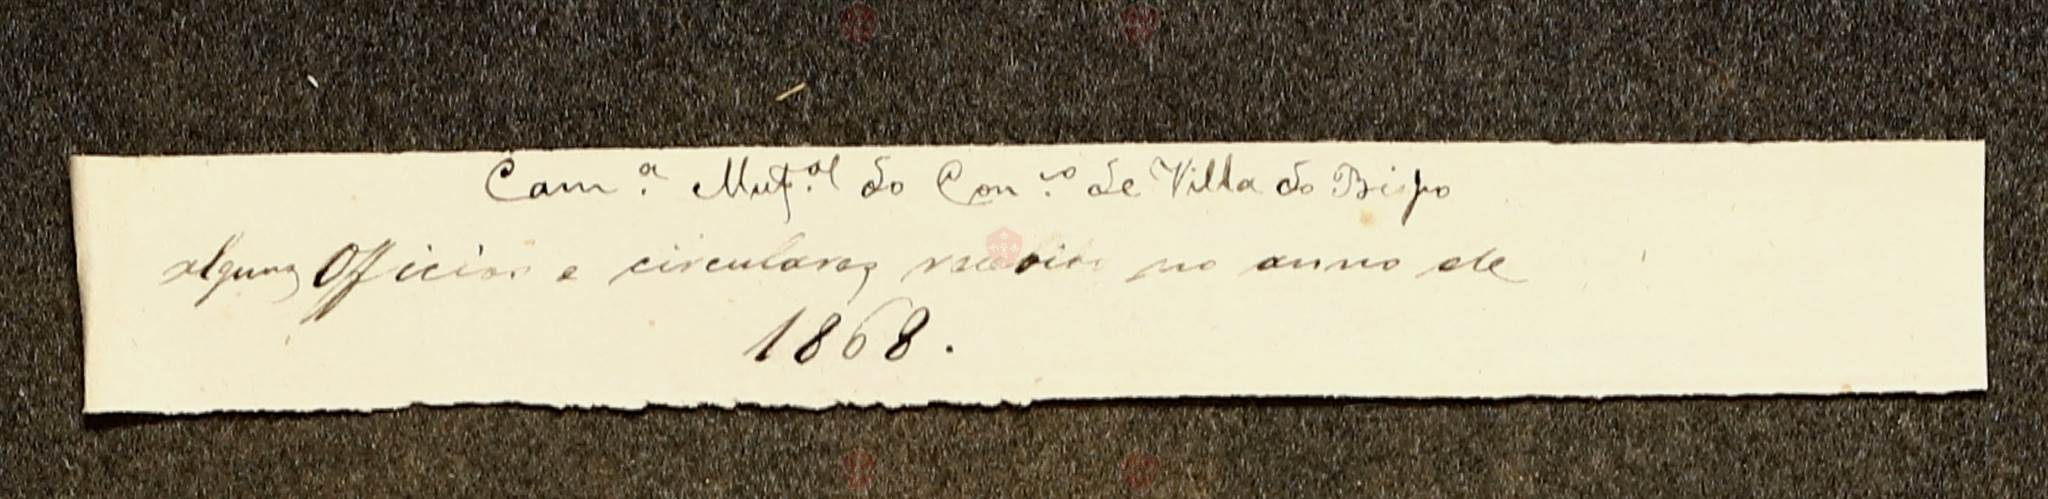 Cam.ª Mup.al do Con.co de Villa do Bispo
alguns Officios e circulares recebidos no anno de
1868.